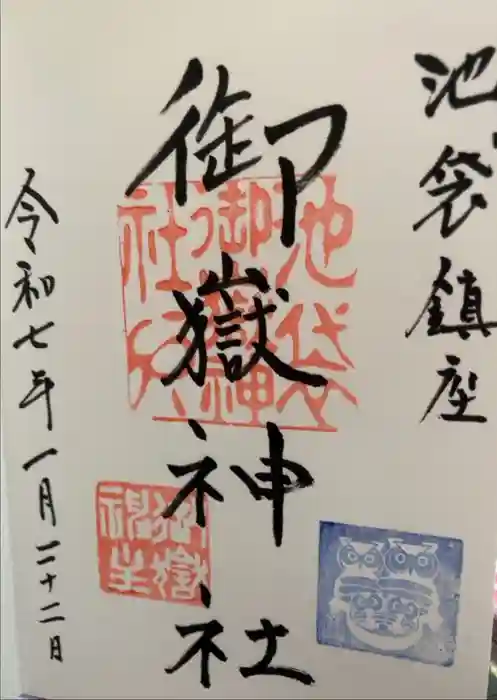 池袋鎮座
御嶽神社
令和七年一月二十二日
池袋
御嶽神
社
御嶽